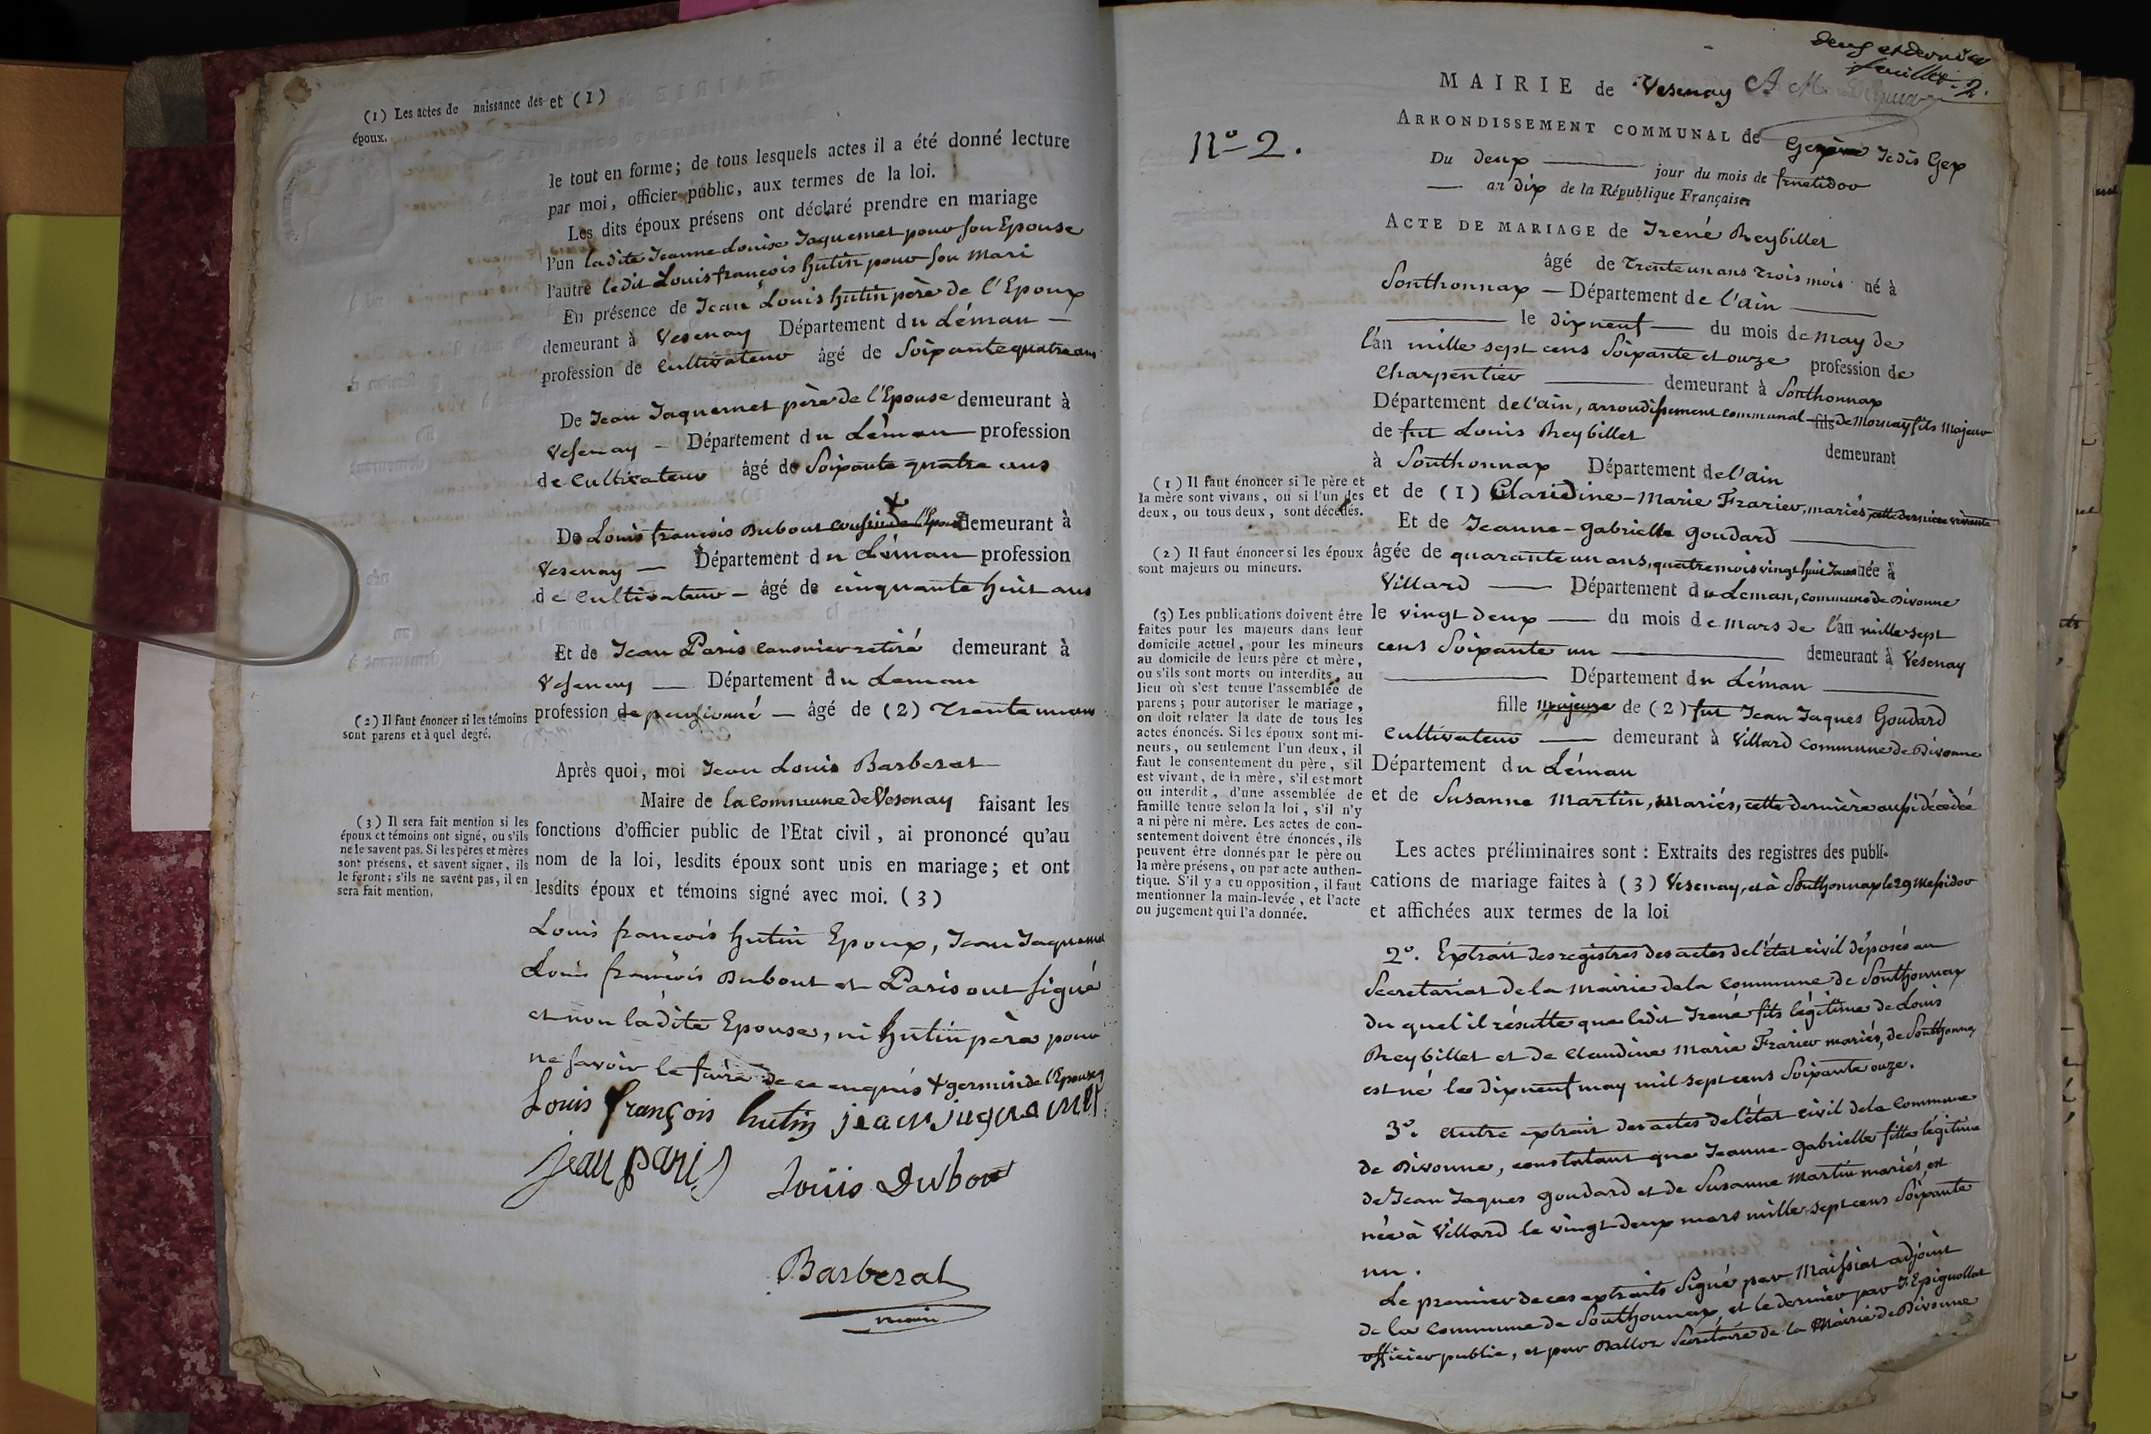 (1) Les actes de naissance des
époux.
et (1)
le tout en forme; de tous lesquels actes il a été donné lecture
par moi, officier public, aux termes de la loi.
Les dits époux présens ont déclaré prendre en mariage
l'un ladite Jeanne Louise Jaquemet pour son Epouse
l'autre ledit Louis françois hutin pour son Mari
En présence de Jean Louis hutin père de l'Epoux
demeurant à Vesenay Département du Léman —
profession de Cultivateur âgé de Soixante quatre ans
De Jean Jaquemet père de l'Epouse demeurant à
Vesenay — Département du Léman — profession
de Cultivateur âgé de Soixante quatre ans
De Louis françois Dubout cousin + de l'Epouse demeurant à
Vesenay — Département du Léman — profession
de Cultivateur — âgé de cinquante huit ans
Et de Jean Paris canonier retiré demeurant à
Vesenay — Département du Leman
(2) Il faut énoncer si les témoins
sont parens et à quel degré.
profession de pensionné — âgé de (2) Trente un ans
Après quoi, moi Jean Louis Barberat
Maire de la Commune de Vesenay faisant les
fonctions d'officier public de l'Etat civil, ai prononcé qu'au
nom de la loi, lesdits époux sont unis en mariage; et ont
lesdits époux et témoins signé avec moi. (3)
(3) Il sera fait mention si les
époux et témoins ont signé, ou s'ils
ne le savent pas. Si les pères et mères
sont présens, et savent signer, ils
le feront; s'ils ne savent pas, il en
sera fait mention.
Louis françois hutin Epoux, Jean Jaquemet
Louis françois Dubout et Paris ont signé
et non ladite Epouse, ni hutin père pour
ne savoir le faire de ce enquis + germain de l'Epouse
Louis françois hutin jean jaquemet
jean paris Louis Dubou
Barberat
maire
deux et dernier
feuillet. 2.
MAIRIE de Vesenay
ARRONDISSEMENT COMMUNAL de Genève Jadis Gex
No 2.
Du deux — jour du mois de fructidor
— an dix de la République Française
ACTE DE MARIAGE de Irené Reybillet
âgé de Trente un ans trois mois né à
Sonthonnax — Département de l'ain —
— le dix neuf — du mois de May de
l'an mille sept cens Soixante et onze profession de
Charpentier — demeurant à Sonthonnax
Département de l'ain, arrondissement communal fils de Mornay fils Majeur
de fut Louis Reybillet demeurant
à Sonthonnax Département de l'ain
et de (1) Claudine-Marie Frarier, mariés, cette dernière vivante
Et de Jeanne-Gabrielle Goudard —
âgée de quarante un ans, quatre mois vingt huit Jours née à
Villard — Département du Leman, commune de Divonne
le vingt deux — du mois de Mars de l'an mille sept
cens Soixante un — demeurant à Vesenay
— Département du Léman —
fille majeure de (2) fut Jean Jaques Goudard
Cultivateur — demeurant à Villard commune de Divonne
Département du Léman
et de Susanne Martin, mariés, cette dernière aussi décédée
(1) Il faut énoncer si le père et
la mère sont vivans, ou si l'un des
deux, ou tous deux, sont décédés.
(2) Il faut énoncer si les époux
sont majeurs ou mineurs.
(3) Les publications doivent être
faites pour les majeurs dans leur
domicile actuel, pour les mineurs
au domicile de leurs père et mère,
ou s'ils sont morts ou interdits, au
lieu où s'est tenue l'assemblée de
parens; pour autoriser le mariage,
on doit relater la date de tous les
actes énoncés. Si les époux sont mi-
neurs, ou seulement l'un deux, il
faut le consentement du père, s'il
est vivant, de la mère, s'il est mort
ou interdit, d'une assemblée de
famille tenue selon la loi, s'il n'y
a ni père ni mère. Les actes de con-
sentement doivent être énoncés, ils
peuvent être donnés par le père ou
la mère présens, ou par acte authen-
tique. S'il y a eu opposition, il faut
mentionner la main-levée, et l'acte
ou jugement qui l'a donnée.
Les actes préliminaires sont : Extraits des registres des publi-
cations de mariage faites à (3) Vesenay, et à Sonthonnax le 29 Messidor
et affichées aux termes de la loi
2o. Extrait des registres des actes de l'état civil déposés au
Secretariat de la Mairie de la commune de Sonthonnax
du quel il résulte que ledit Irené fils légitime de Louis
Reybillet et de Claudine Marie Frarier mariés, de Sonthonnax
est né le dix neuf may mil sept cens Soixante onze.
3o. Autre extrait des actes de l'état civil de la commune
de Divonne, constatant que Jeanne-Gabrielle fille légitime
de Jean Jaques Goudard et de Susanne Martin mariés, est
née à Villard le vingt deux mars mille sept cens Soixante
un.
Le premier de ces extraits Signé par Maissiat adjoint
de la commune de Sonthonnax, et le dernier par J. Epignollat
officier public, et par Balloz Secrétaire de la Mairie de Divonne